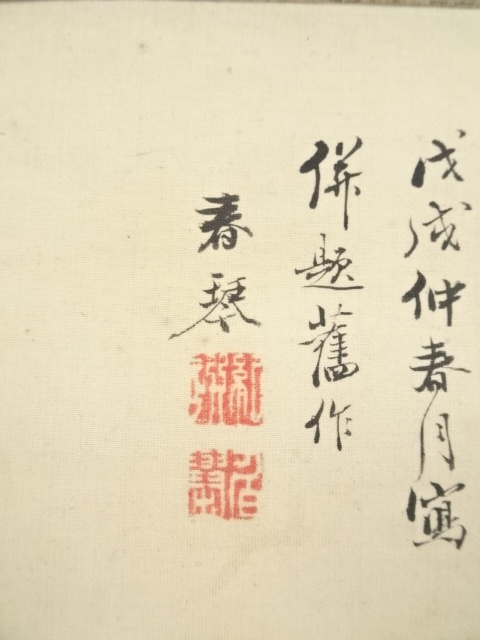 戊戌仲春月寫
併題舊作
春琴